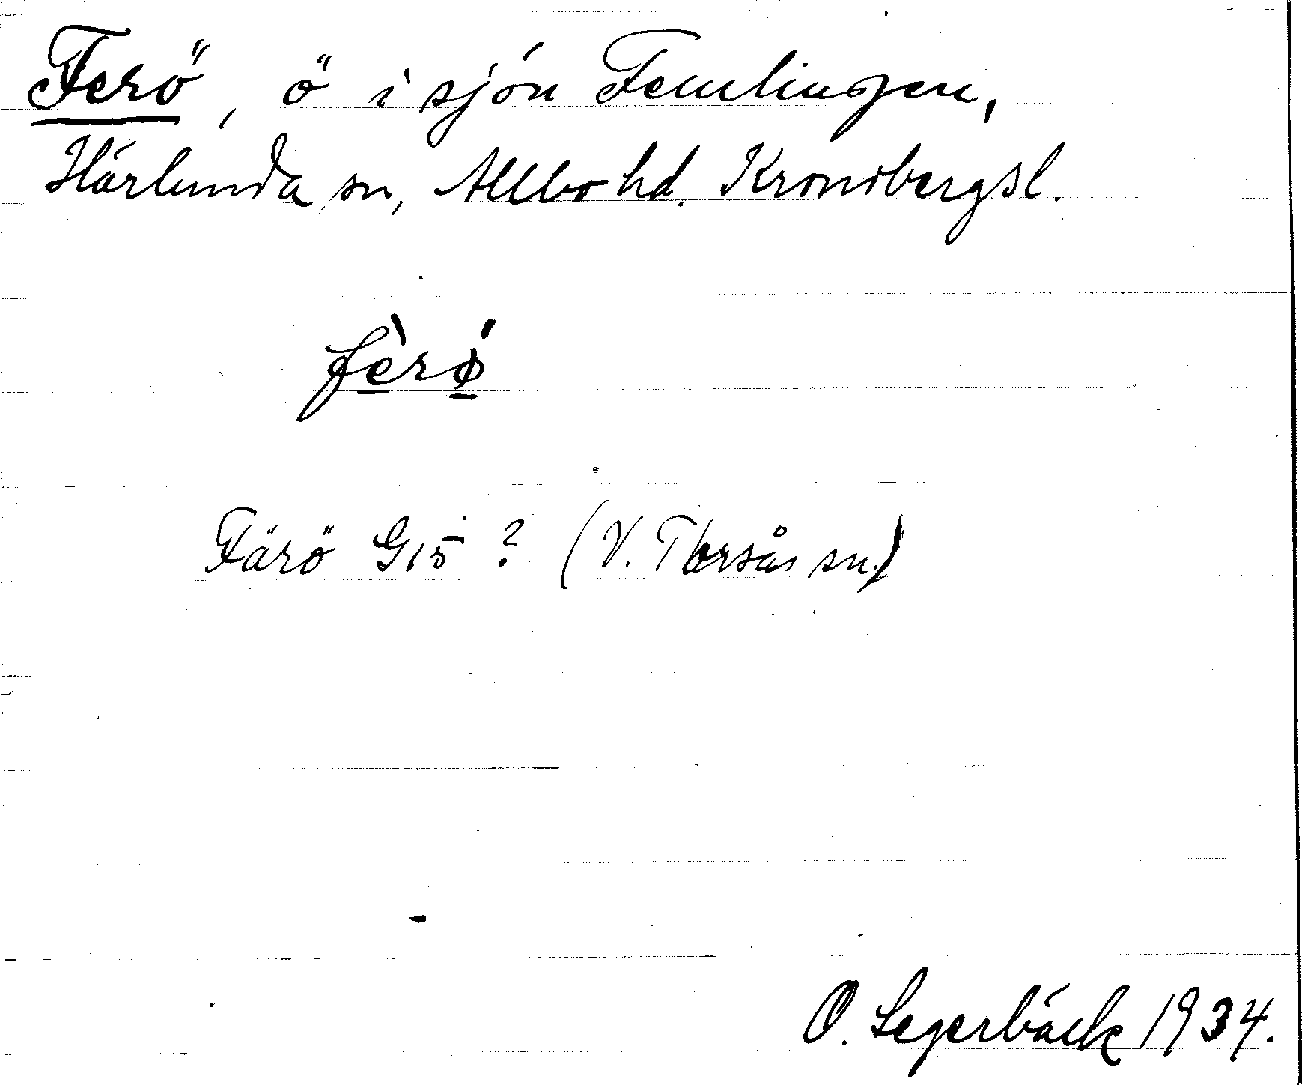 Ferö, ö i sjön Femlingen,
Härlunda sn, Allbo hd. Kronobergsl.
fèrǿ
Färö G15 ? (V. Torsås sn)
O. Segerbäck 1934.